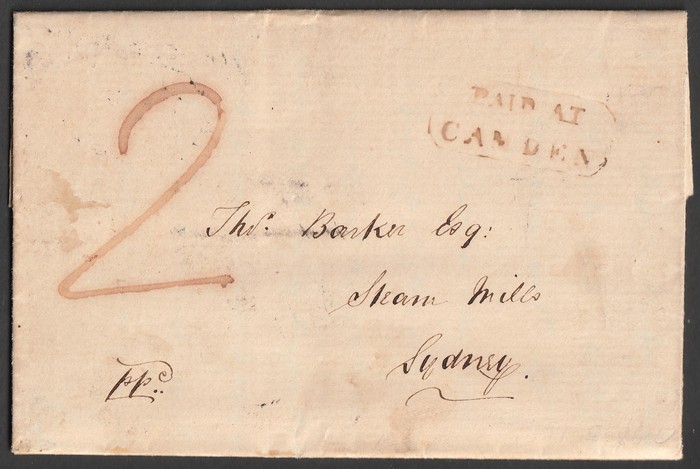 2
PAID AT
CAMDEN
Thos. Barker Esq:
Steam Mills
Sydney.